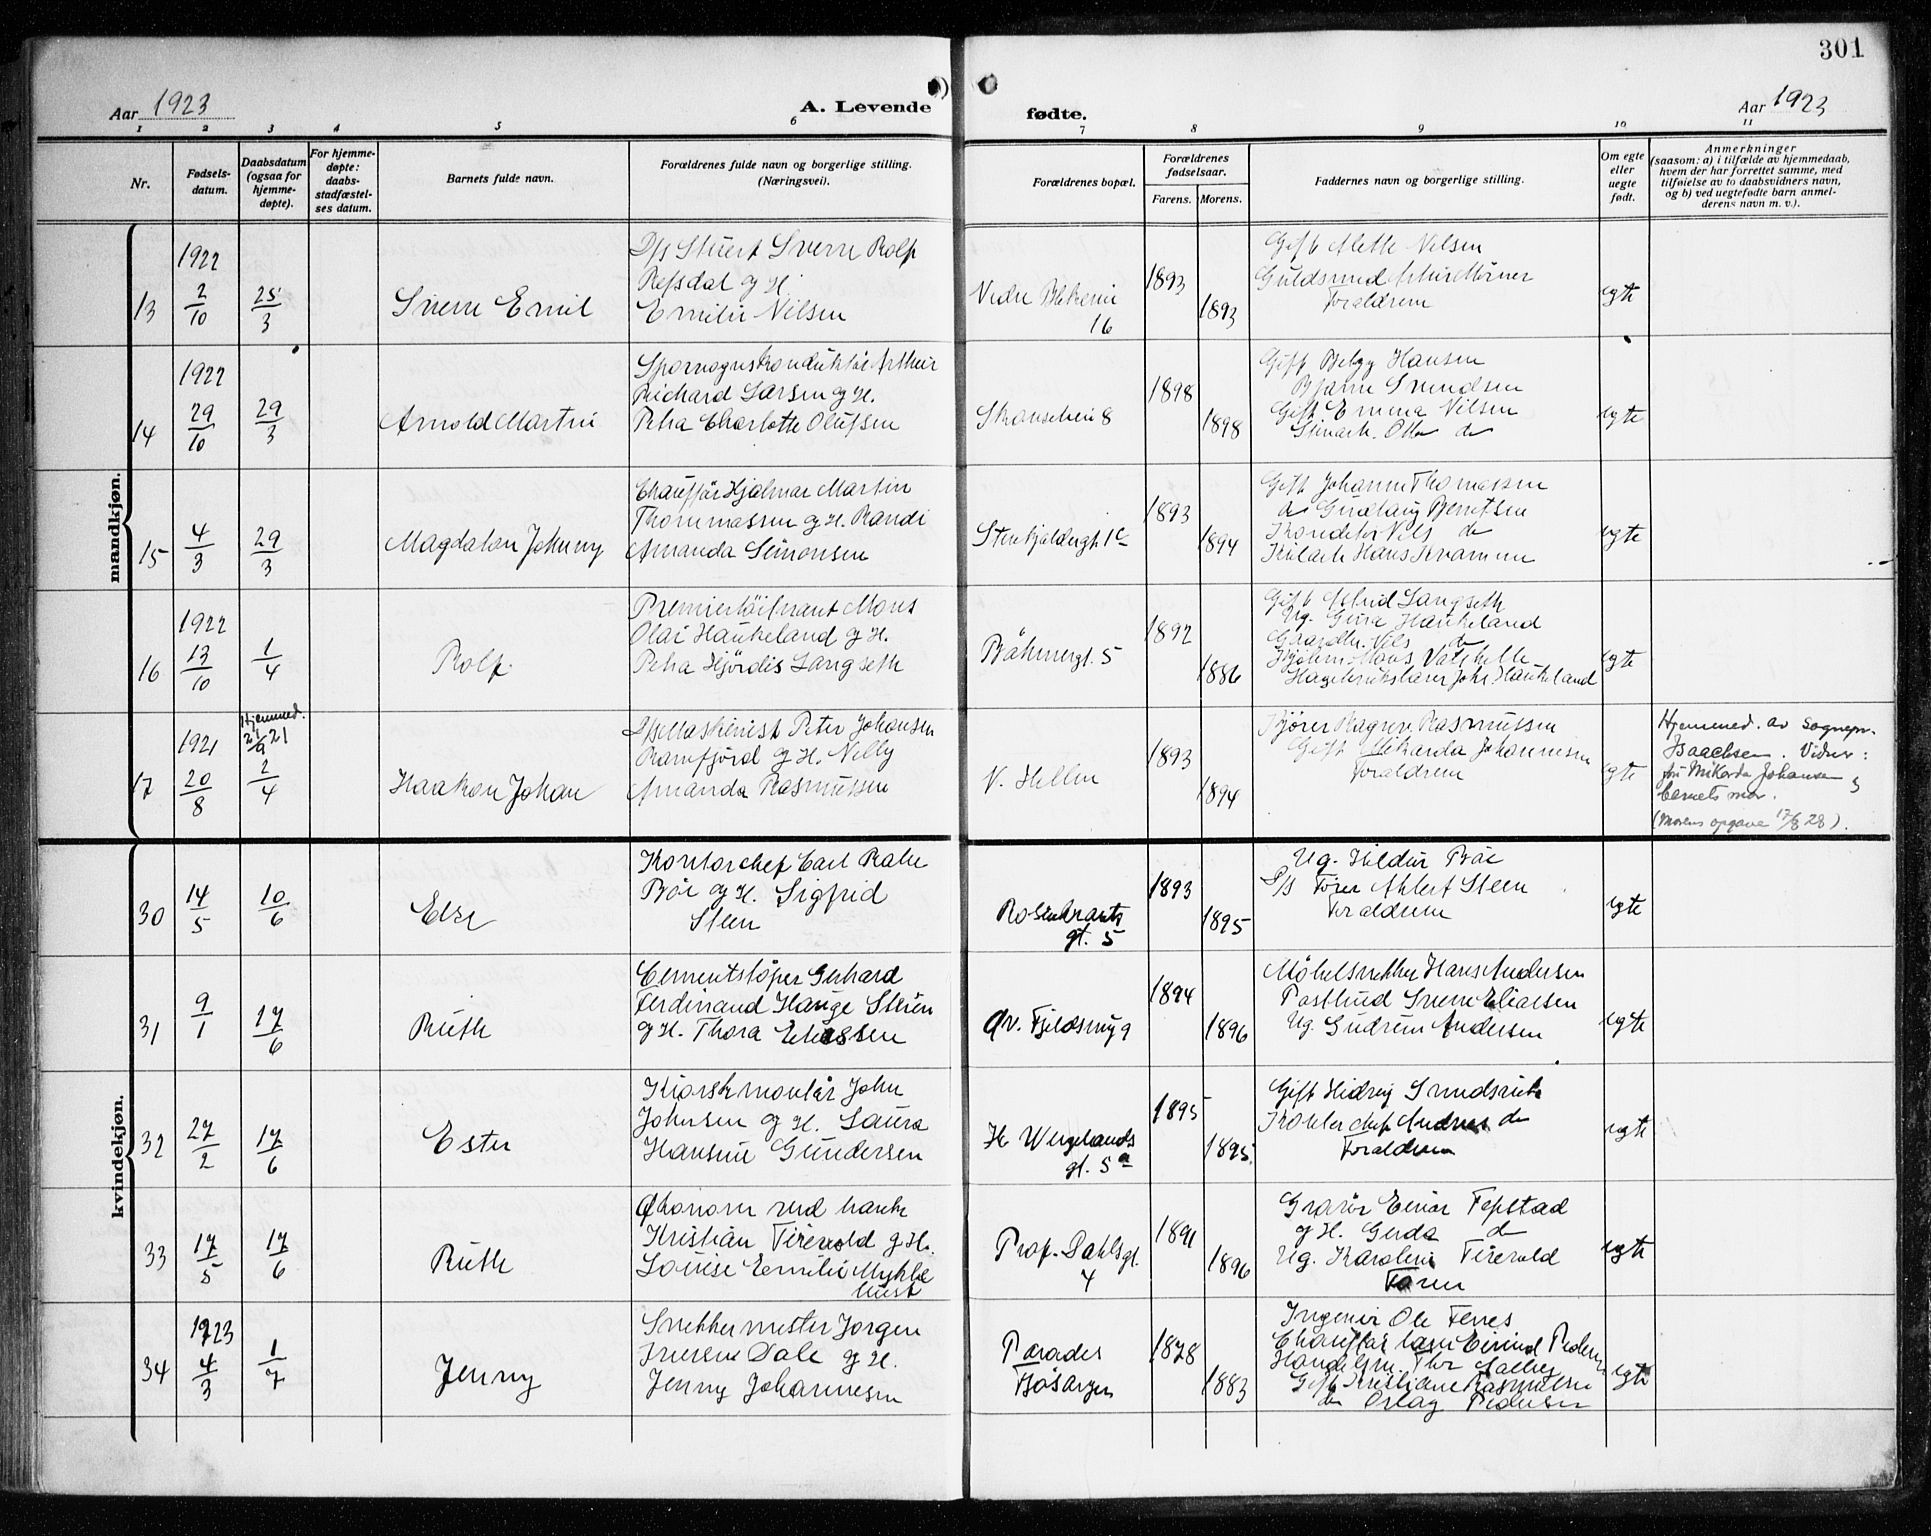 301
Aar 1923
A. Levende fødte.
Aar 1923
1 2 3 4 5 6 7 8 9 10 11
Nr.
Fødsels-
datum.
Daabsdatum
(ogsaa for
hjemme-
døpte).
For hjemme-
døpte:
daabs-
stadfæstel-
ses datum.
Barnets fulde navn.
Forældrenes fulde navn og borgerlige stilling.
(Næringsvei).
Forældrenes bopæl.
Forældrenes
fødselsaar.
Farens. Morens.
Faddernes navn og borgerlige stilling.
Om egte
eller
uegte
født.
Anmerkninger
(saasom: a) i tilfælde av hjemmedaab,
hvem der har forrettet samme, med
tilføielse av to daabsvidners navn,
og b) ved uegtefødte barn anmel-
derens navn m. v.).
mandkjøn.
13
1922
2/10
25/3
Sverre Emil
D/s Stuert Sverre Rolf
Refsdal og H.
Emilie Nilsen
Vedre Blekevei
16
1893
1893
Gift Alette Nilsen
Guldsmed Arthur Mörner
Forældrene
egte
14
1922
29/10
29/3
Arnold Martin
Sporvognskonduktör Arthur
Richard Larsen og H.
Petra Charlotte Olufsen
Skanselien 8
1898
1898
Gift Betzy Hansen
Bjarne Svendsen
Gift Emma Nilsen
Otto do
egte
15
4/3
29/3
Magdalon Johnny
Chaufför Hjalmar Martin
Thommassen og H. Randi
Amanda Simonsen
Stenkjeldergt. 1c
1893
1894
Gift Johanne Thomassen
do Gudlaug Berntsen
Konditor Nils do
Hans Kvamme
egte
16
1922
13/10
1/4
Rolf
Premierlöitnant Mons
Olai Haukeland og H.
Petra Hjördis Langseth
Böhmergt. 5
1892
1886
Gift Astrid Langseth
Ug. Gina Haukeland
Gaardbr. Nils do
Mons Vatshelle
Johs. Haukeland
egte
17
1921
20/8
Hjemmed.
21/9 21
2/4
Haakon Johan
D/s Maskinist Peter Johansen
Ramfjord og H. Nelly
Amanda Rasmussen
V. Hellen
1893
1894
Ragnv. Rasmussen
Gift Mikarda Johannesen
Forældrene
egte
Hjemmed. av Sognepr.
Isaachsen. Vidner:
fru Mikarda Johansen og
barnets mor.
(Morens opgave 17/8 28).
kvindekjøn.
30
14/5
10/6
Else
Kontorchef Carl Rabe
Böe og H. Sigfrid
Steen
Rosenkrantz
gt. 5
1893
1895
Ug. Hildur Böe
D/s Förer Ahlert Steen
Forældrene
egte
31
9/1
17/6
Ruth
Cementstöper Gerhard
Ferdinand Hauge Steen
og H. Thora Eliassen
Øv. Fjeldsmug 9
1894
1896
Möbelsnekker Hans Andersen
Postbud Sverre Eliassen
Ug. Gudrun Andersen
egte
32
27/2
17/6
Ester
Kioskmontör John
Johnsen og H. Laura
Hansine Gundersen
H. Wergelands
gt. 5a
1895
1895
Gift Hedvig Smedsvik
Andreas do
Forældrene
egte
33
17/5
17/6
Ruth
Økonom ved
Kristian Tirevold og H.
Louise Emilie Myklebust
Prof. Dahls gt.
4
1891
1896
Gravör Einar Fepstad
og H. Gerda do
Ug. Karoline Tirevold
Faren
egte
34
1923
4/3
1/7
Jenny
Snekkermester Jørgen
Iversen Dale og H.
Jenny Johannesen
Parades
Fjösanger
1878
1883
Ingeniör Ole Fenes
Chauffør Eivind Pedersen
Handelsm. Thor Aalberg
Gift Kristiane Rasmussen
do Oslaug Pedersen
egte